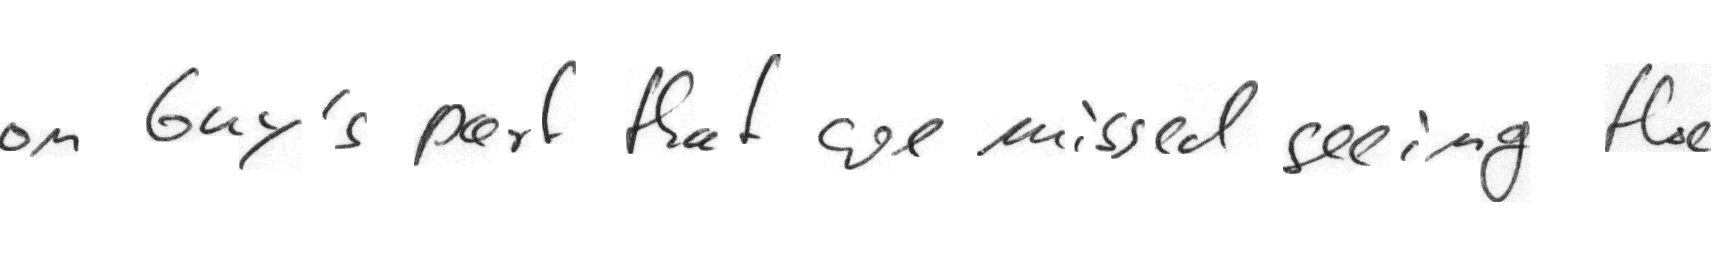 on Guy's part that we missed seeing the